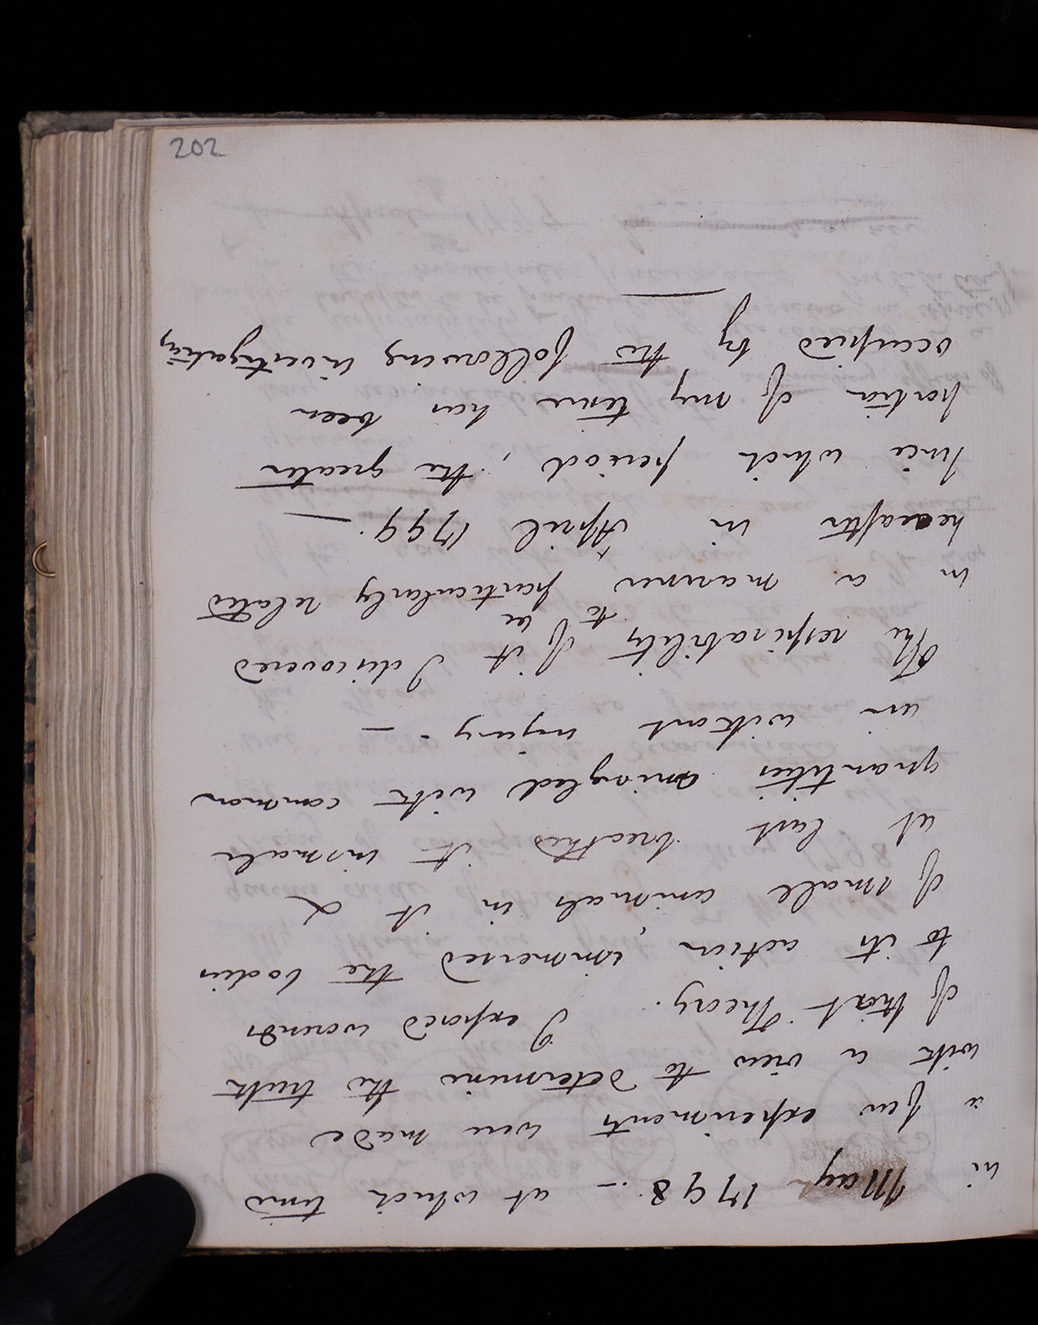 202
in May 1798. — at which time
a few experiments were made
with a view to determine the truth
of that Theory. I exposed wounds
to its action, immersed the bodies
of small animals in it &
at last breathed it in small
quantities mingled with common
air without injury. —
The respirability of it I discovered
to be
in a manner particularly related
hereafter in April 1799. —
Since which period, the greater
portion of my time has been
occupied by the following investigation